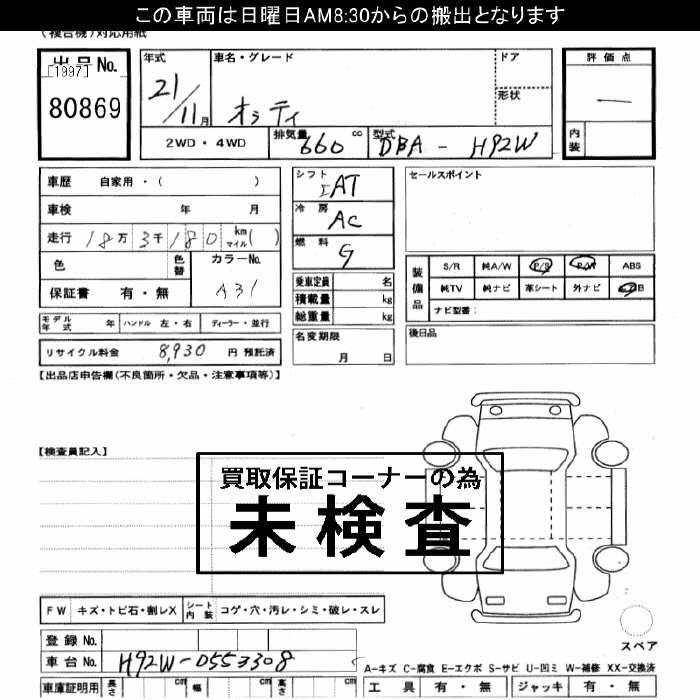 この車両は日曜日AM8:30からの搬出となります
(複合機)対応用紙
出品No.
[1997]
80869
年式
21/11月
車名・グレード
オッティ
ドア
形状
評価点
一
内装
2WD・4WD
排気量 660 cc
型式 DBA-H92W
車歴 自家用・( )
車検 年 月
走行 18万3千180 km マイル( )
色
色替
カラーNo.
A31
保証書 有・無
モデル年式 年
ハンドル 左・右
ディーラー・並行
リサイクル料金 8,930 円 預託済
シフト
IAT
冷房
AC
燃料
G
乗車定員 名
積載量 kg
総重量 kg
名変期限
月 日
セールスポイント
装備品
S/R 純A/W P/S P/W ABS
純TV 純ナビ 革シート 外ナビ エアB
ナビ型番:
後日品
【出品店申告欄(不良箇所・欠品・注意事項等)】
【検査員記入】
買取保証コーナーの為
未検査
FW キズ・トビ石・割レX
シート内装 コゲ・穴・汚レ・シミ・破レ・スレ
登録No.
車台No. H92W-0553308
車庫証明用 長さ cm 幅 cm 高さ cm
スペア
A-キズ C-腐食 E-エクボ S-サビ U-凹ミ W-補修 XX-交換済
工具 有・無 ジャッキ 有・無